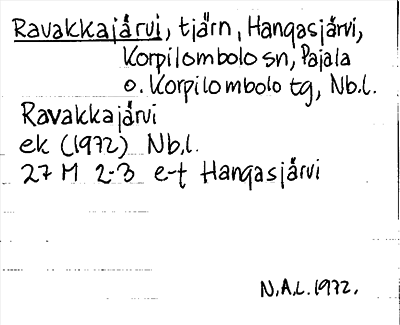 Ravakkajärvi, tjärn, Hangasjärvi,
Korpilombolo sn, Pajala
o. Korpilombolo tg, Nb.l.
Ravakkajärvi
ek (1972) Nb.l.
27 M 2-3 e-t Hangasjärvi
N.A.L. 1972.